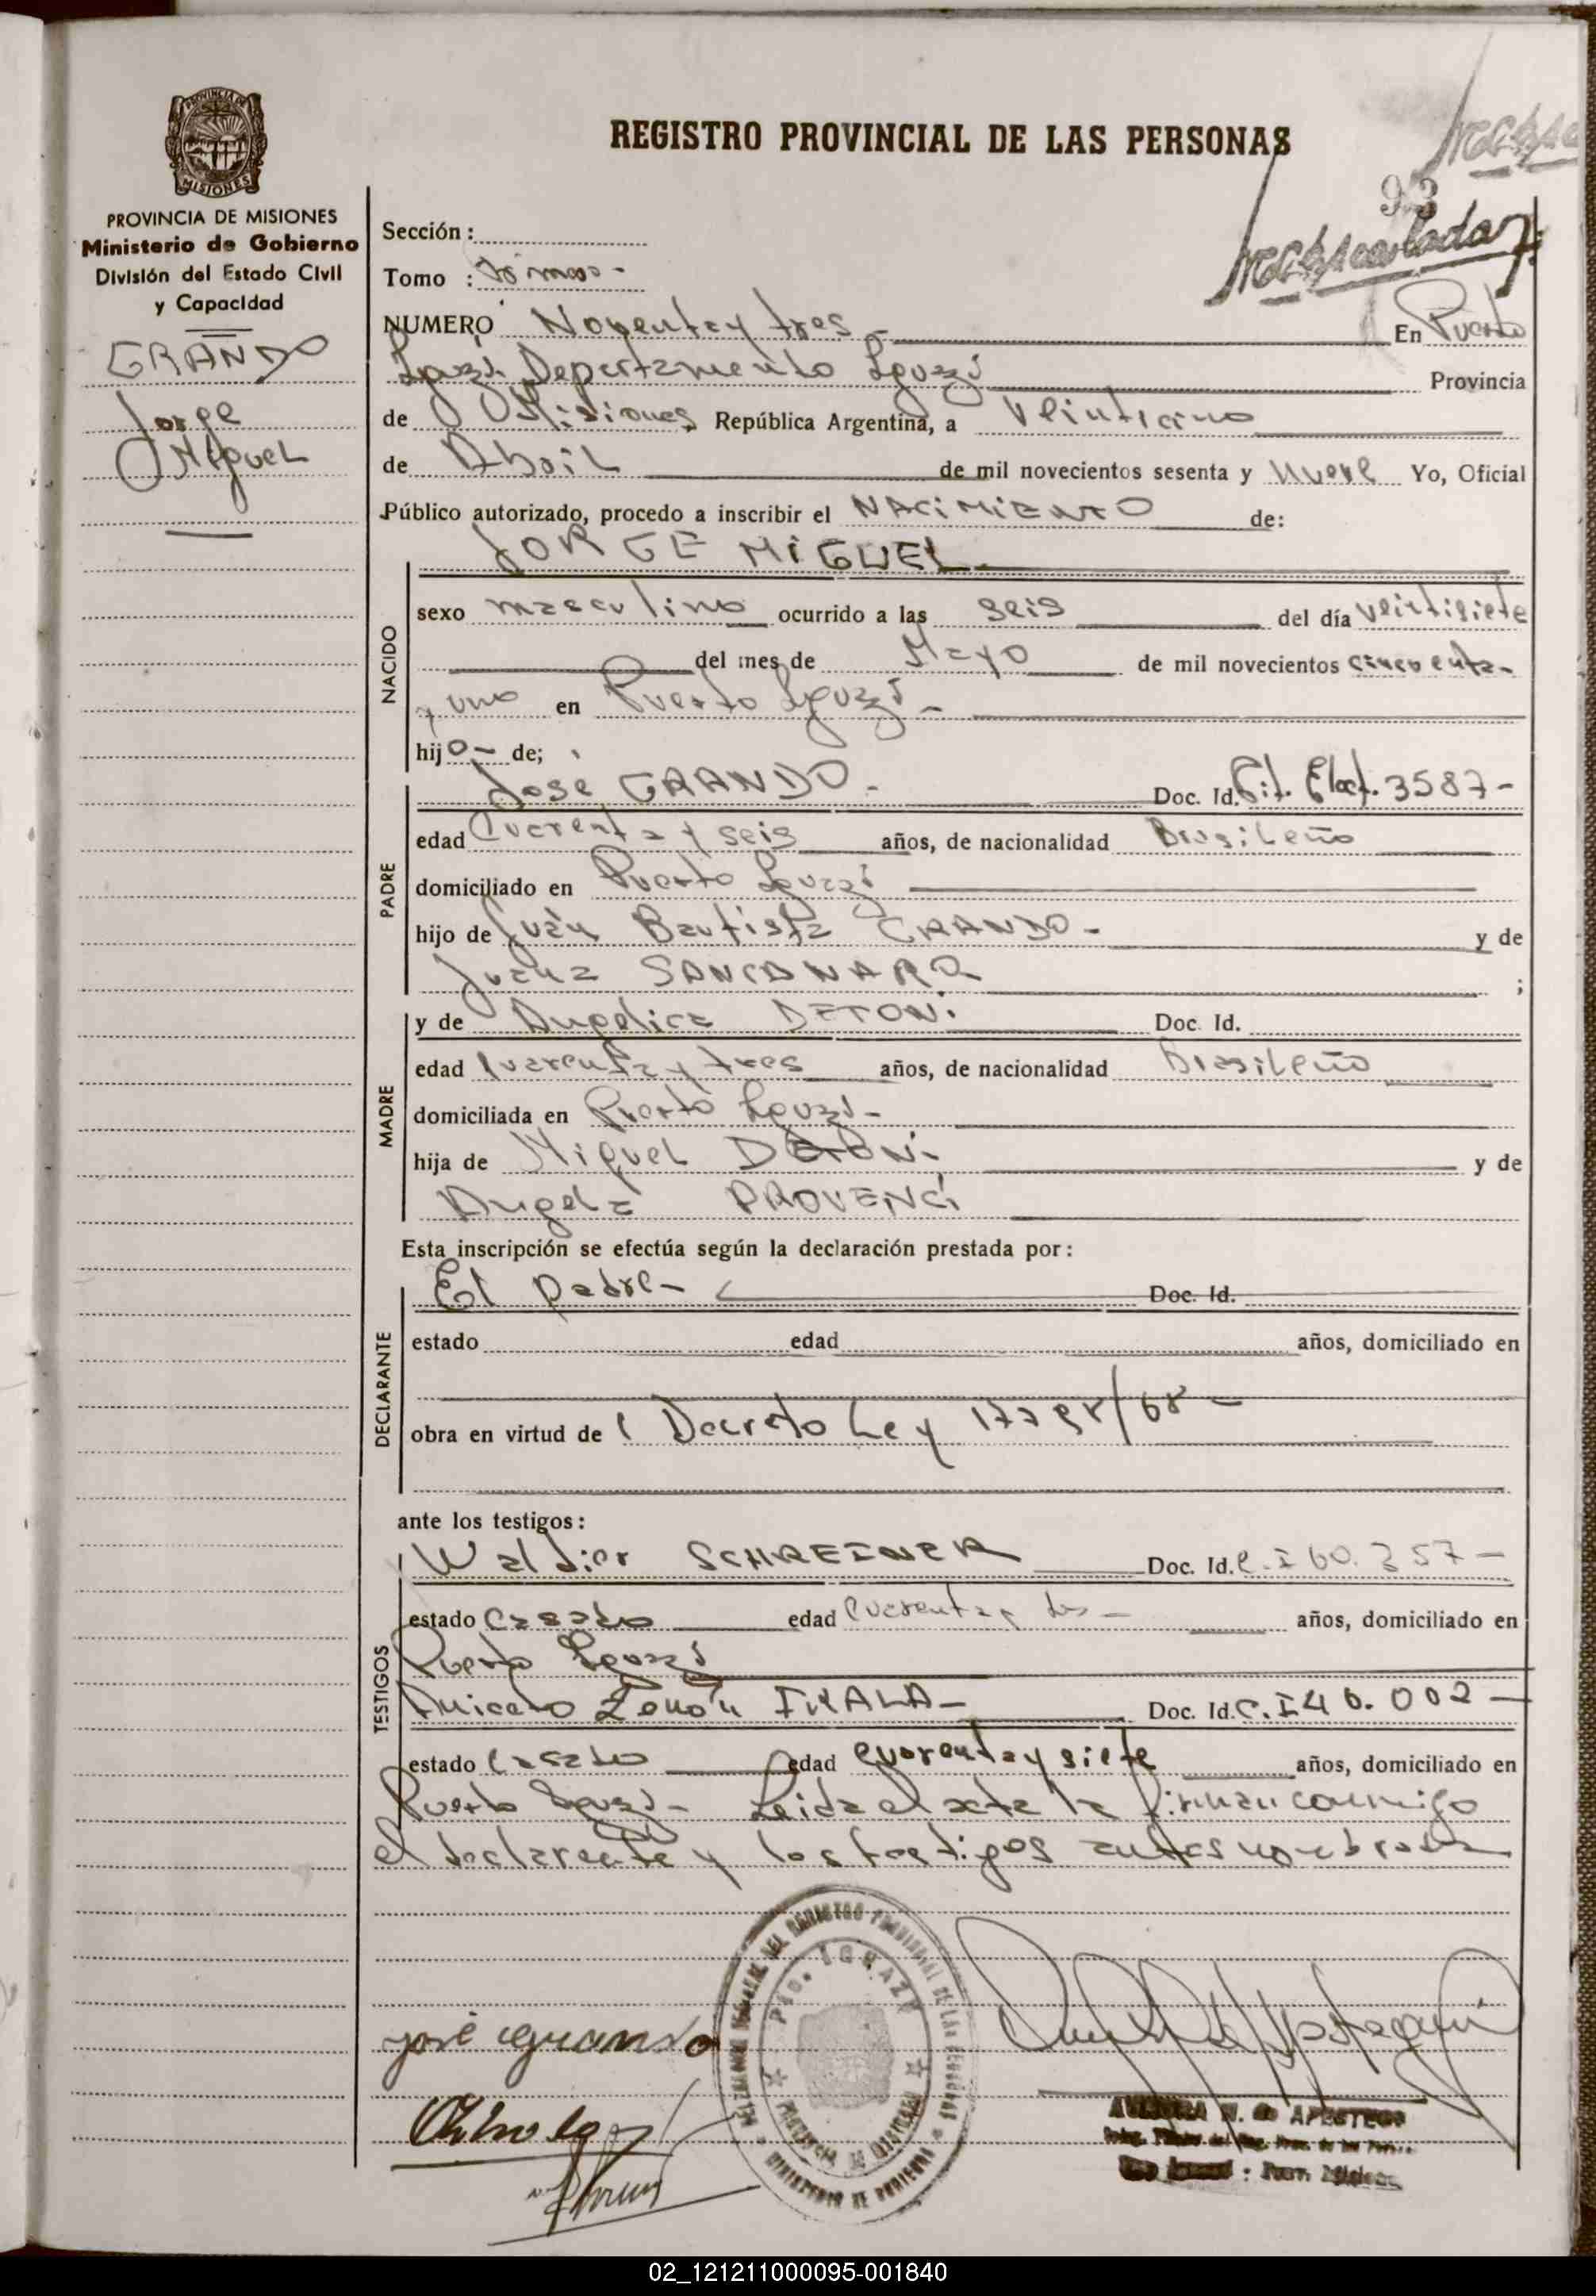 REGISTRO PROVINCIAL DE LAS PERSONAS
PROVINCIA DE MISIONES
Ministerio de Gobierno
División del Estado Civil
y Capacidad
GRANDO
Jorge
Miguel
93
Sección :
Tomo :
NUMERO Noventa y tres En Puerto
Iguazú Departamento Iguazú Provincia
de Misiones República Argentina, a Veinticinco
de Abril de mil novecientos sesenta y nueve Yo, Oficial
Público autorizado, procedo a inscribir el NACIMIENTO de:
NACIDO
JORGE MIGUEL
sexo masculino ocurrido a las seis del día veintisiete
del mes de Mayo de mil novecientos cincuenta
y uno en Puerto Iguazú
hijo de;
PADRE
José GRANDO Doc. Id. 3587
edad Cuarenta y seis años, de nacionalidad Brasileño
domiciliado en Puerto Iguazú
hijo de Juán Bautista GRANDO y de
Juana ;
MADRE
y de Angelica DETONI Doc. Id.
edad Cuarenta y tres años, de nacionalidad Brasileño
domiciliada en Puerto Iguazú
hija de Miguel DETONI y de
Angela PROVENCI
Esta inscripción se efectúa según la declaración prestada por:
DECLARANTE
El padre Doc. Id.
estado edad años, domiciliado en
obra en virtud de l Decreto Ley
ante los testigos:
TESTIGOS
SCHREINER Doc. Id. C.I 60.357
estado Casado edad Cuarenta y dos años, domiciliado en
Puerto Iguazú
Aniceto Zenón IRALA Doc. Id. C.I 46.002
estado Casado edad cuarenta y siete años, domiciliado en
Puerto Iguazú Leida el acta la firman conmigo
el declarante y los testigos antes nombrados
José Grando
PTO. IGUAZU
PROVINCIA DE MISIONES
MINISTERIO DE GOBIERNO
02_121211000095-001840